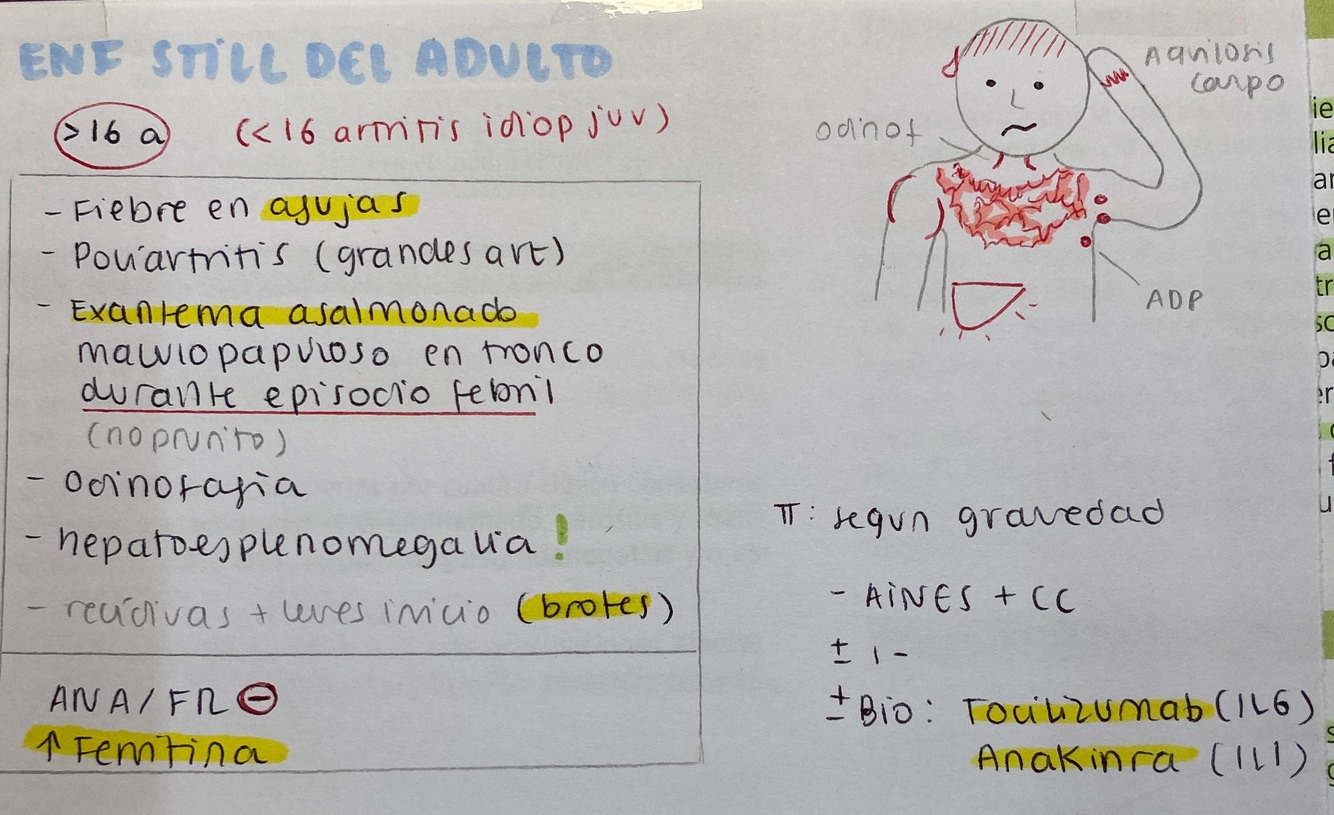 ENF STILL DEL ADULTO
>16 a (<16 artritis idiop juv)
- Fiebre en agujas
- Poliartritis (grandes art)
- Exantema asalmonado
maculopapuloso en tronco
durante episodio febril
(no prurito)
- Odinofagia
- hepatoesplenomegalia !
- recidivas + leves inicio (brotes)
ANA / FR ⊖
↑ Ferritina
Aquilosis
carpo
odinof
ADP
π: según gravedad
- AINES + CC
± I -
± Bio: Tocilizumab (IL6)
Anakinra (IL1)